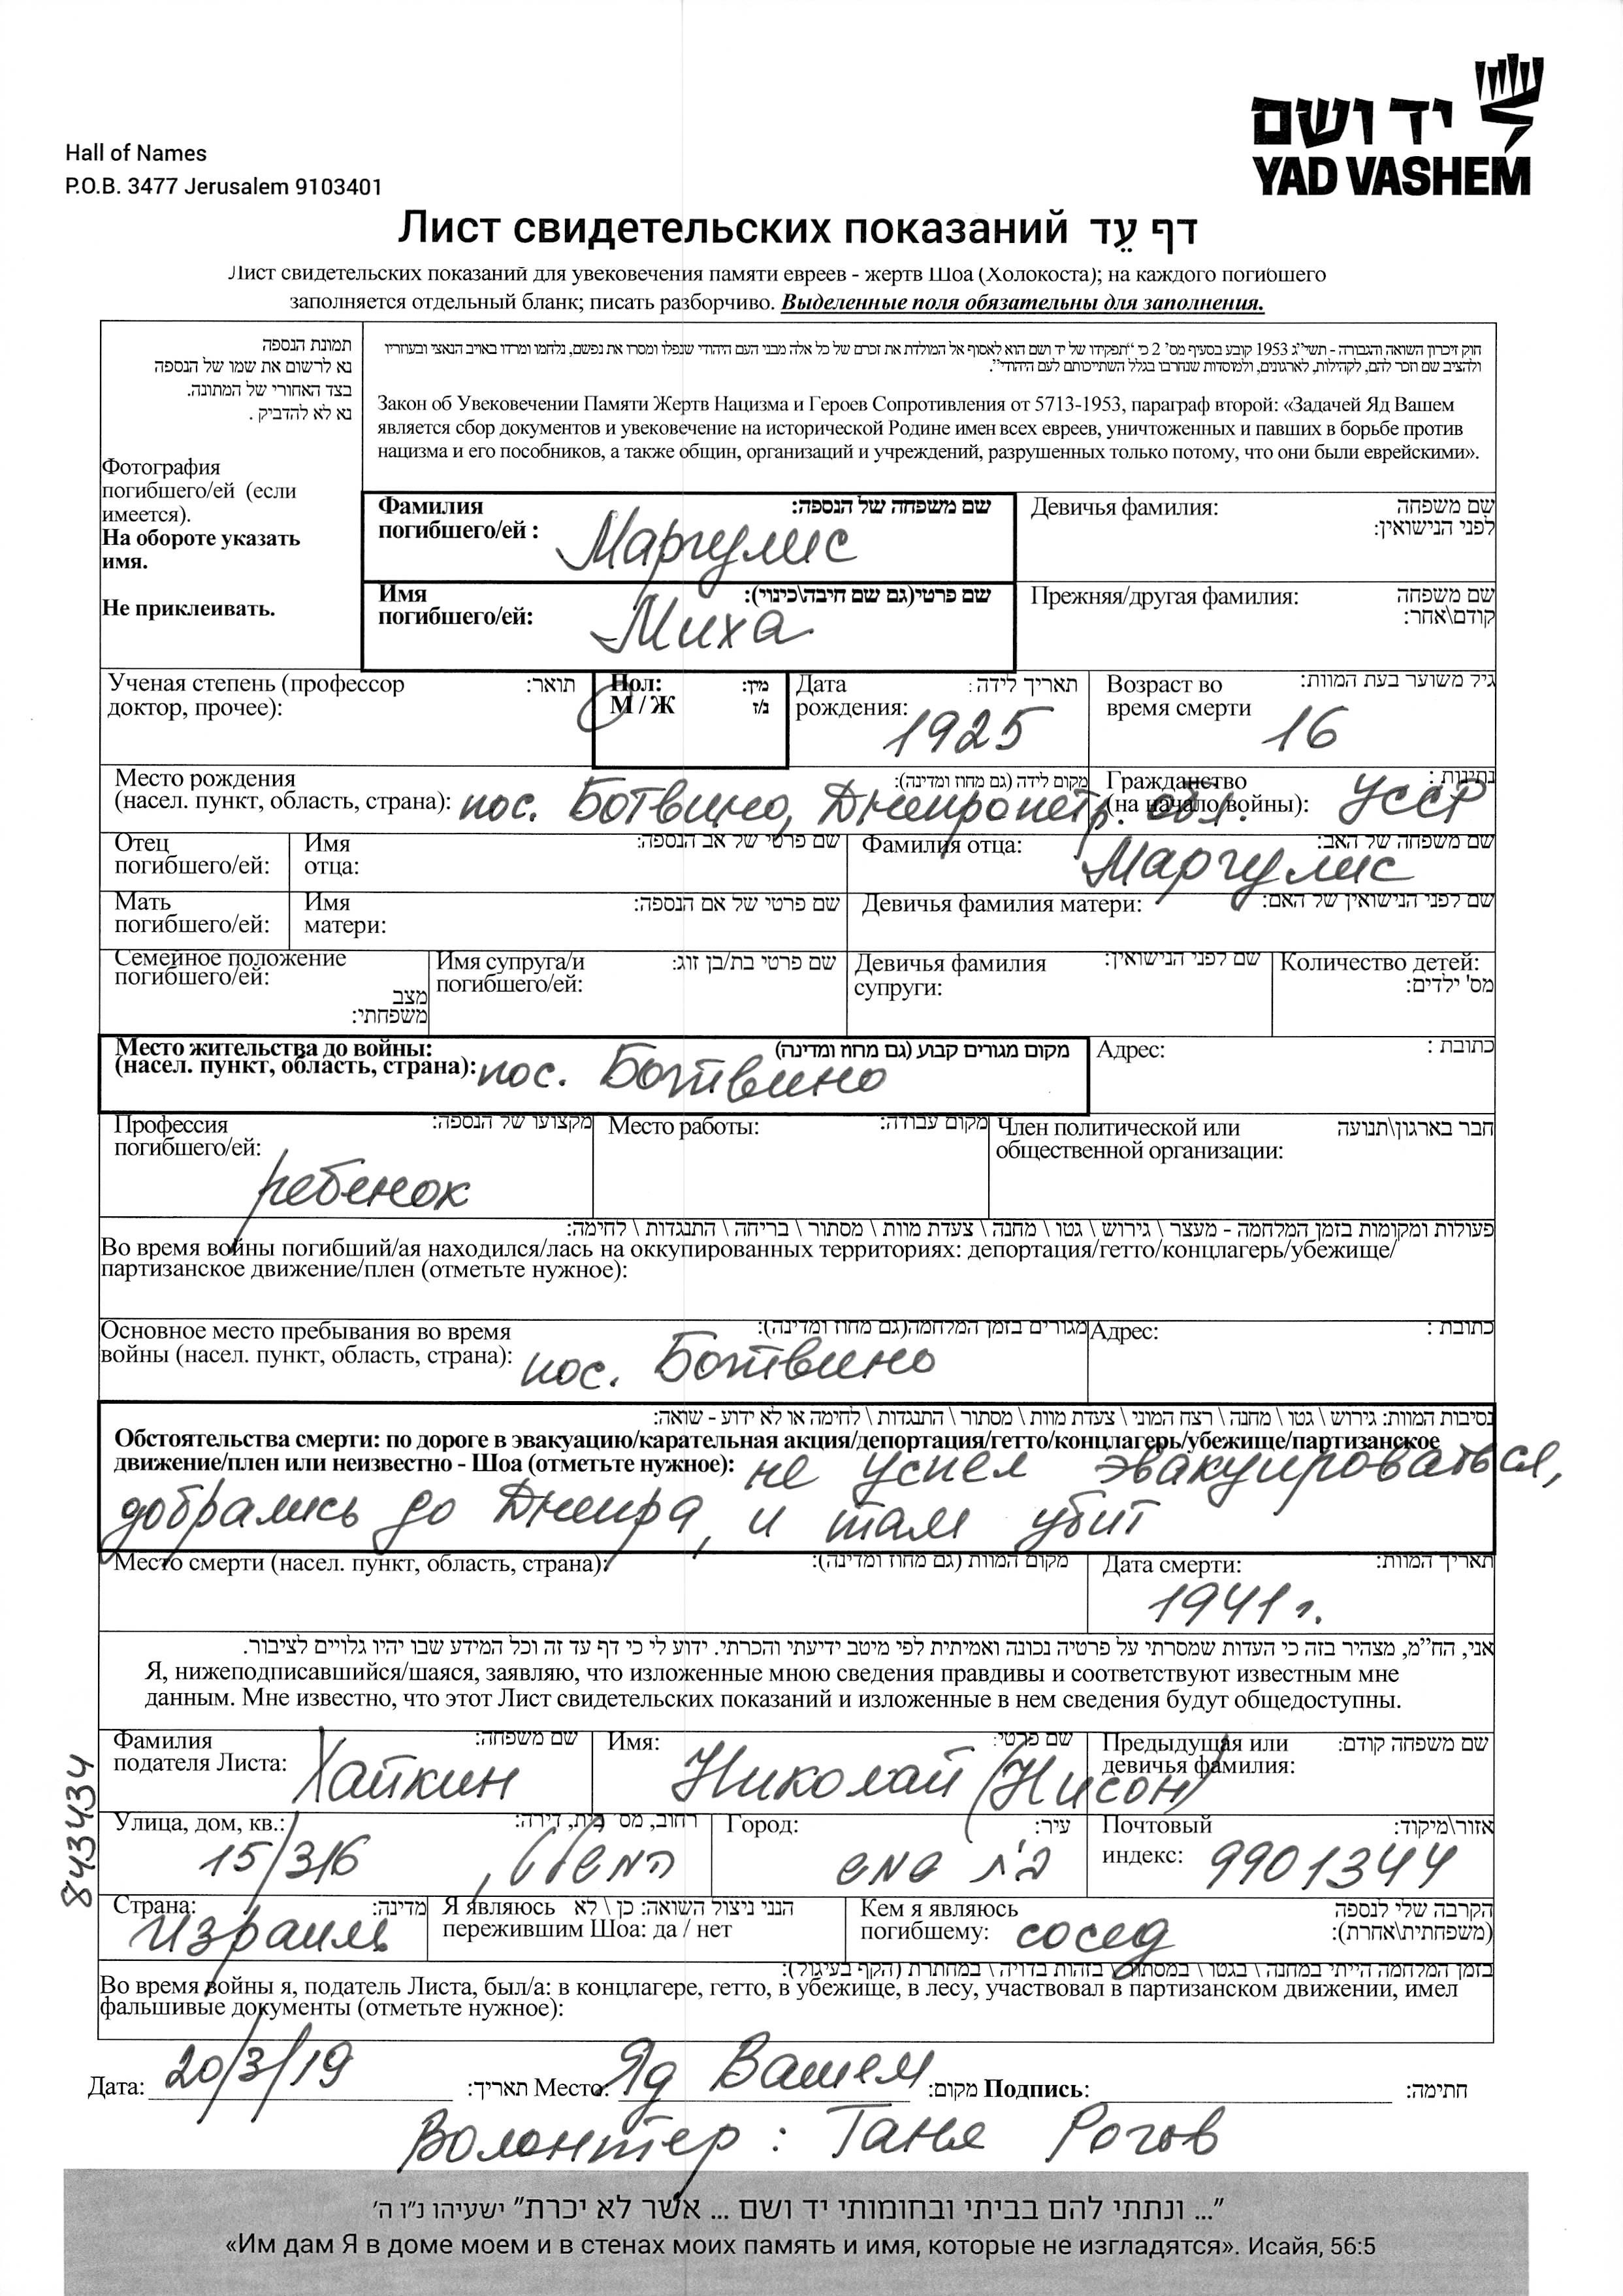 יד ושם
YAD VASHEM
Hall of Names
P.O.B. 3477 Jerusalem 9103401
Лист свидетельских показаний דף עֵד
Лист свидетельских показаний для увековечения памяти евреев - жертв Шоа (Холокоста); на каждого погибшего
заполняется отдельный бланк; писать разборчиво. Выделенные поля обязательны для заполнения.
תמונת הנספה
נא לרשום את שמו של הנספה
בצד האחורי של התמונה.
נא לא להדביק .
Фотография
погибшего/ей (если
имеется).
На обороте указать
имя.
Не приклеивать.
חוק זיכרון השואה והגבורה - תשי"ג 1953 קובע בסעיף מס' 2 כי "תפקידו של יד ושם הוא לאסוף אל המולדת את זכרם של כל אלה מבני העם היהודי שנפלו ומסרו את נפשם, נלחמו ומרדו באויב הנאצי ובעוזריו
ולהציב שם וזכר להם, לקהילות, לארגונים, ולמוסדות שנחרבו בגלל השתייכותם לעם היהודי".
Закон об Увековечении Памяти Жертв Нацизма и Героев Сопротивления от 5713-1953, параграф второй: «Задачей Яд Вашем
является сбор документов и увековечение на исторической Родине имен всех евреев, уничтоженных и павших в борьбе против
нацизма и его пособников, а также общин, организаций и учреждений, разрушенных только потому, что они были еврейскими».
Фамилия погибшего/ей : שם משפחה של הנספה: Маргулис
Девичья фамилия: שם משפחה לפני הנישואין:
Имя погибшего/ей: שם פרטי(גם שם חיבה\כינוי): Миха
Прежняя/другая фамилия: שם משפחה קודם\אחר:
Ученая степень (профессор доктор, прочее): תואר:
Пол: М / Ж מין: ז/נ
Дата рождения: תאריך לידה: 1925
Возраст во время смерти גיל משוער בעת המוות: 16
Место рождения (насел. пункт, область, страна): מקום לידה (גם מחוז ומדינה): пос. Ботвино, Днепропетр. обл.
Гражданство (на начало войны): נתינות : УССР
Отец погибшего/ей: Имя отца: שם פרטי של אב הנספה:
Фамилия отца: שם משפחה של האב: Маргулис
Мать погибшего/ей: Имя матери: שם פרטי של אם הנספה:
Девичья фамилия матери: שם לפני הנישואין של האם:
Семейное положение погибшего/ей: מצב משפחתי:
Имя супруга/и погибшего/ей: שם פרטי בת/בן זוג:
Девичья фамилия супруги: שם לפני הנישואין:
Количество детей: מס' ילדים:
Место жительства до войны: (насел. пункт, область, страна): מקום מגורים קבוע (גם מחוז ומדינה) пос. Ботвино
Адрес: כתובת :
Профессия погибшего/ей: מקצועו של הנספה: ребенок
Место работы: מקום עבודה:
Член политической или общественной организации: חבר בארגון\תנועה
פעולות ומקומות בזמן המלחמה - מעצר \ גירוש \ גטו \ מחנה \ צעדת מוות \ מסתור \ בריחה \ התנגדות \ לחימה:
Во время войны погибший/ая находился/лась на оккупированных территориях: депортация/гетто/концлагерь/убежище/
партизанское движение/плен (отметьте нужное):
Основное место пребывания во время войны (насел. пункт, область, страна): מגורים בזמן המלחמה(גם מחוז ומדינה): пос. Ботвино
Адрес: כתובת :
נסיבות המוות: גירוש \ גטו \ מחנה \ רצח המוני \ צעדת מוות \ מסתור \ התנגדות \ לחימה או לא ידוע - שואה:
Обстоятельства смерти: по дороге в эвакуацию/карательная акция/депортация/гетто/концлагерь/убежище/партизанское
движение/плен или неизвестно - Шоа (отметьте нужное): не успел эвакуироваться,
добрались до Днепра, и там убит
Место смерти (насел. пункт, область, страна): מקום המוות (גם מחוז ומדינה):
Дата смерти: תאריך המוות: 1941 г.
אני, הח"מ, מצהיר בזה כי העדות שמסרתי על פרטיה נכונה ואמיתית לפי מיטב ידיעתי והכרתי. ידוע לי כי דף עד זה וכל המידע שבו יהיו גלויים לציבור.
Я, нижеподписавшийся/шаяся, заявляю, что изложенные мною сведения правдивы и соответствуют известным мне
данным. Мне известно, что этот Лист свидетельских показаний и изложенные в нем сведения будут общедоступны.
Фамилия подателя Листа: שם משפחה: Хайкин
Имя: שם פרטי: Николай (Нисон)
Предыдущая или девичья фамилия: שם משפחה קודם:
Улица, дом, кв.: רחוב, מס' בית, דירה: 15/316
Город: עיר: בית שמש
Почтовый индекс: אזור\מיקוד: 9901344
Страна: מדינה: Израиль
Я являюсь пережившим Шоа: да / нет הנני ניצול השואה: כן \ לא
Кем я являюсь погибшему: הקרבה שלי לנספה (משפחתית\אחרת): сосед
בזמן המלחמה הייתי במחנה \ בגטו \ במסתור \ בזהות בדויה \ במחתרת (הקף בעיגול):
Во время войны я, податель Листа, был/а: в концлагере, гетто, в убежище, в лесу, участвовал в партизанском движении, имел
фальшивые документы (отметьте нужное):
Дата: 20/3/19 תאריך: Место: Яд Вашем מקום: Подпись: חתימה:
Волонтер : Таня Рогов
843434
"... ונתתי להם בביתי ובחומותי יד ושם ... אשר לא יכרת" ישעיהו נ"ו ה'
«Им дам Я в доме моем и в стенах моих память и имя, которые не изгладятся». Исайя, 56:5